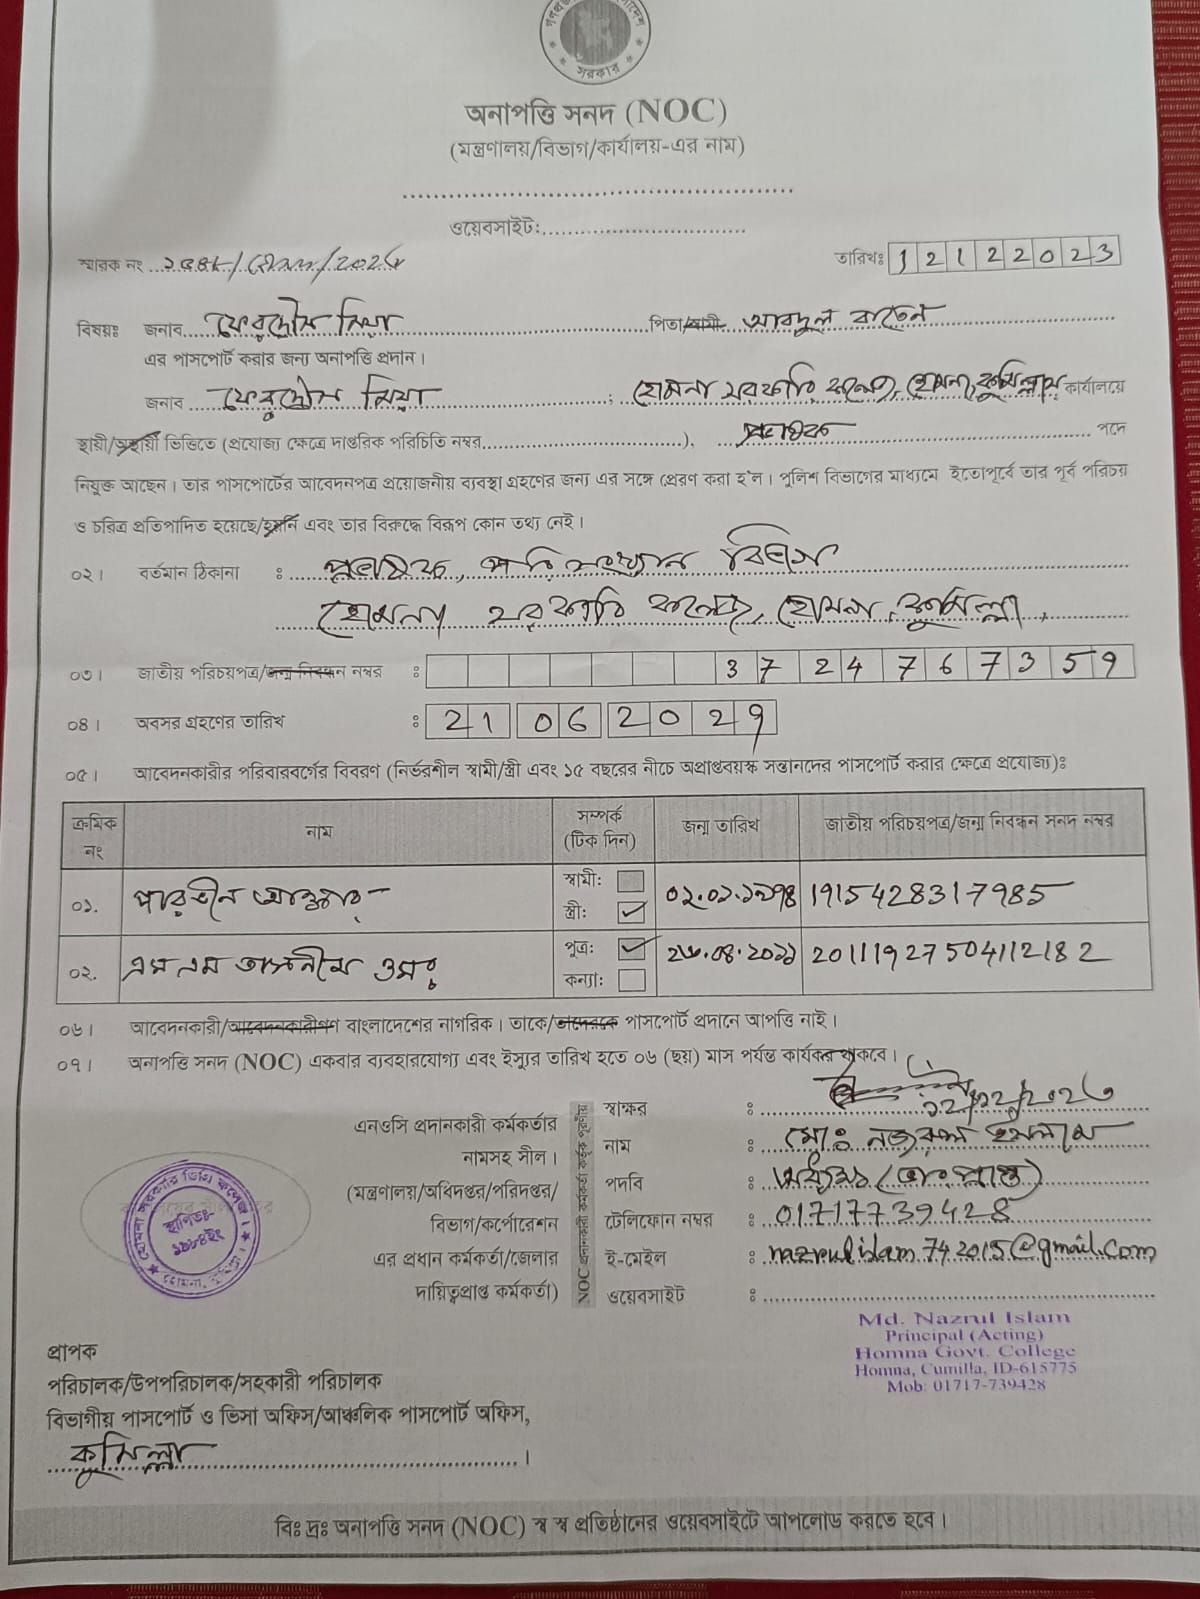 সরকার
অনাপত্তি সনদ (NOC)
(মন্ত্রণালয়/বিভাগ/কার্যালয়-এর নাম)
ওয়েবসাইট:
স্মারক নং /2023 তারিখঃ 12122023
বিষয়ঃ জনাব ফেরদৌস মিয়া পিতা/স্বামী আবদুল বাতেন
এর পাসপোর্ট করার জন্য অনাপত্তি প্রদান।
জনাব ফেরদৌস মিয়া ; হোমনা সরকারি কলেজ, হোমনা, কুমিল্লায় কার্যালয়ে
স্থায়ী/অস্থায়ী ভিত্তিতে (প্রযোজ্য ক্ষেত্রে দাপ্তরিক পরিচিতি নম্বর), প্রভাষক পদে
নিযুক্ত আছেন। তার পাসপোর্টের আবেদনপত্র প্রয়োজনীয় ব্যবস্থা গ্রহণের জন্য এর সঙ্গে প্রেরণ করা হ'ল। পুলিশ বিভাগের মাধ্যমে ইতোপূর্বে তার পূর্ব পরিচয়
ও চরিত্র প্রতিপাদিত হয়েছে/হয়নি এবং তার বিরুদ্ধে বিরূপ কোন তথ্য নেই।
০২। বর্তমান ঠিকানা : প্রভাষক, পরিসংখ্যান বিভাগ
হোমনা সরকারি কলেজ, হোমনা, কুমিল্লা,
০৩। জাতীয় পরিচয়পত্র/জন্ম নিবন্ধন নম্বর : 3724767359
০৪। অবসর গ্রহণের তারিখ : 21062029
০৫। আবেদনকারীর পরিবারবর্গের বিবরণ (নির্ভরশীল স্বামী/স্ত্রী এবং ১৫ বছরের নীচে অপ্রাপ্তবয়স্ক সন্তানদের পাসপোর্ট করার ক্ষেত্রে প্রযোজ্য)ঃ
ক্রমিক নং নাম সম্পর্ক (টিক দিন) জন্ম তারিখ জাতীয় পরিচয়পত্র/জন্ম নিবন্ধন সনদ নম্বর
০১. পারভীন আক্তার স্বামী: স্ত্রী: 1915428317985
০২. এস এম তাসনীম ওমর পুত্র: কন্যা: ২৬.০৪.২০১১ 20111927504112182
০৬। আবেদনকারী/আবেদনকারীগণ বাংলাদেশের নাগরিক। তাকে/তাদেরকে পাসপোর্ট প্রদানে আপত্তি নাই।
০৭। অনাপত্তি সনদ (NOC) একবার ব্যবহারযোগ্য এবং ইস্যুর তারিখ হতে ০৬ (ছয়) মাস পর্যন্ত কার্যকর থাকবে।
এনওসি প্রদানকারী কর্মকর্তার
নামসহ সীল।
(মন্ত্রণালয়/অধিদপ্তর/পরিদপ্তর/
বিভাগ/কর্পোরেশন
এর প্রধান কর্মকর্তা/জেলার
দায়িত্বপ্রাপ্ত কর্মকর্তা)
NOC প্রদানকারী কর্মকর্তা কর্তৃক পূরণীয়
স্বাক্ষর : ১২/১২/২০২৩
নাম : মোঃ নজরুল ইসলাম
পদবি : অধ্যক্ষ (ভাঃপ্রাপ্ত)
টেলিফোন নম্বর : 01717739428
ই-মেইল : nazrulislam.742015@gmail.com
ওয়েবসাইট :
হোমনা সরকারি ডিগ্রি কলেজ
স্থাপিতঃ
হোমনা, কুমিল্লা
Md. Nazrul Islam
Principal (Acting)
Homna Govt. College
Homna, Cumilla, ID-615775
Mob: 01717-739428
প্রাপক
পরিচালক/উপপরিচালক/সহকারী পরিচালক
বিভাগীয় পাসপোর্ট ও ভিসা অফিস/আঞ্চলিক পাসপোর্ট অফিস,
কুমিল্লা।
বিঃ দ্রঃ অনাপত্তি সনদ (NOC) স্ব স্ব প্রতিষ্ঠানের ওয়েবসাইটে আপলোড করতে হবে।